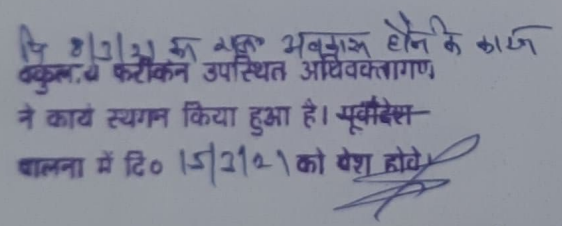 दि 8/3/21 का अवकाश होने के कारण
वकुलाय फरीकेन उपस्थित अधिवक्तागण
ने कार्य स्थगन किया हुआ है। पूर्वादेश
पालना में दि० 15/3/21 को पेश होवे।